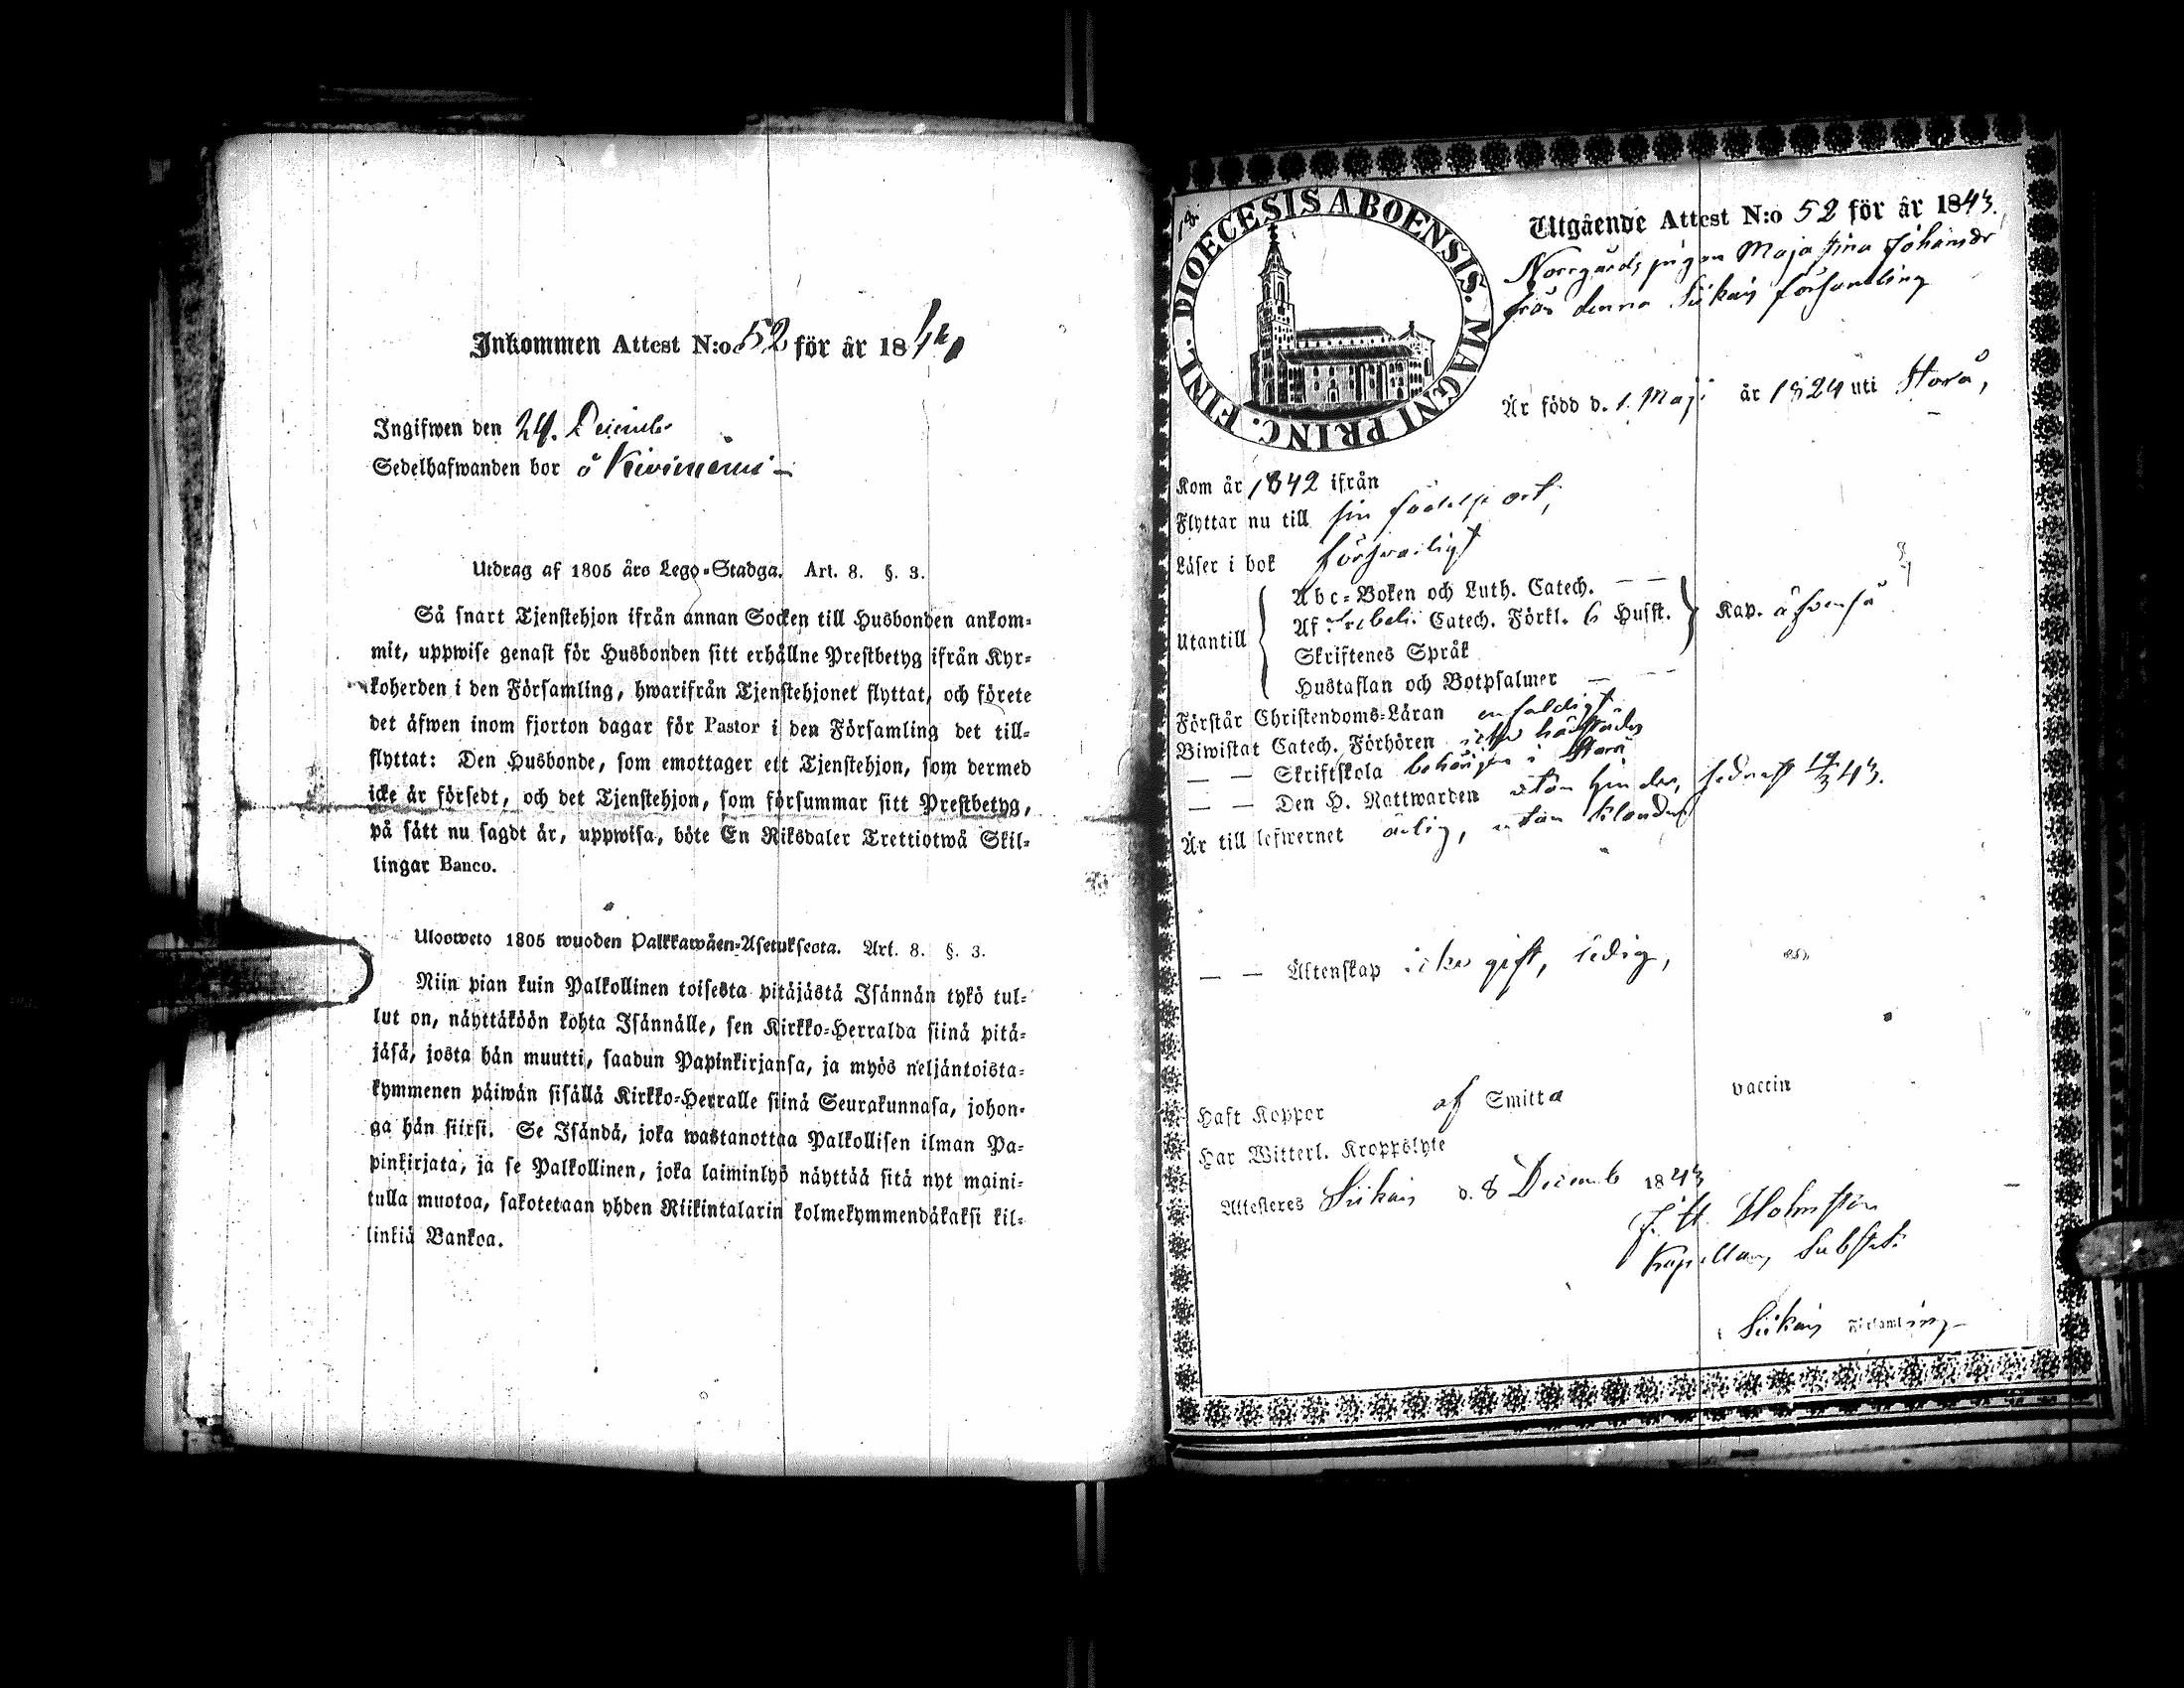 Inkommen Attest N:o 52 för år 184
Ingifwen den 24. Decemb
Sedelhafwanden bor å Kiviniemi
Utdrag af 1805 års Lego-Stadga. Art. 8. §. 3.
Så snart Tjenstehjon ifrån annan Socken till Husbonden ankom-
mit, uppwise genast för Husbonden sitt erhållne Prestbetyg ifrån Kyr-
koherden i den Församling, hwarifrån Tjenstehjonet flyttat, och förete
det äfwen inom fjorton dagar för Pastor i den Församling det till-
flyttat: Den Husbonde, som emottager ett Tjenstehjon, som dermed
icke är försedt, och det Tjenstehjon, som försummar sitt Prestbetyg,
på sätt nu sagdt är, uppwisa, böte En Riksdaler Trettiotwå Skil-
lingar Banco.
Ulosweto 1805 wuoden Palkkawäen-Asetuksesta. Art. 8. §. 3.
Niin pian kuin Palkollinen toisesta pitäjästä Isännän tykö tul-
lut on, näyttäköön kohta Isännälle, sen Kirkko-Herralda siinä pitä-
jäsä, josta hän muutti, saadun Papinkirjansa, ja myös neljäntoista-
kymmenen päiwän sisällä Kirkko-Herralle siinä Seurakunnasa, johon-
ga hän siirsi. Se Isändä, joka wastanottaa Palkollisen ilman Pa-
pinkirjata, ja se Palkollinen, joka laiminlyö näyttää sitä nyt maini-
tulla muotoa, sakotetaan yhden Riikintalarin kolmekymmendäkaksi kil-
linkiä Bankoa.
DIOECESIS ABOENSIS. MAGNI PRINC. FINL.
Utgående Attest N:o 52 för år 1843.
Norrgårds pigan Maja Stina Johansdr
från denna Siikais församling
Är född d. 1. Maji år 1824 uti Storå,
Kom år 1842 ifrån
Flyttar nu till sin födelse ort,
Läser i bok försvarligt
Abc-Boken och Luth. Catech.
Af Catech. Förkl. 6 Husst.
Utantill Kap. äfvenså
Skriftenes Språk
Hustaflan och Botpsalmer
Förstår Christendoms-Läran enfaldigt
Biwistat Catech. Förhören
— — Skriftskola behörigen i Storå
— — Den H. Nattwarden utan hinder, sednast 43.
Är till lefwernet ärlig, utan
— — Äktenskap icke gift, ledig,
Haft Koppor af Smitta vaccin
Har Witterl. Kroppslyte
Attesteres Siikais d. 8 Decemb 1843
Holmstén
Kapellans Substit:
i Siikais Församling